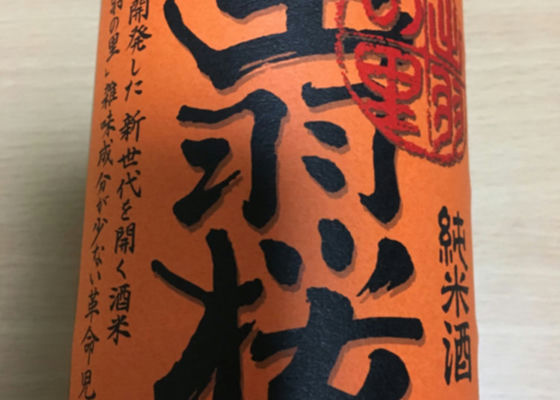 出羽
の里
純米酒
出羽桜
開発した新世代を開く酒米
羽の里」雑味成分が少ない革命児